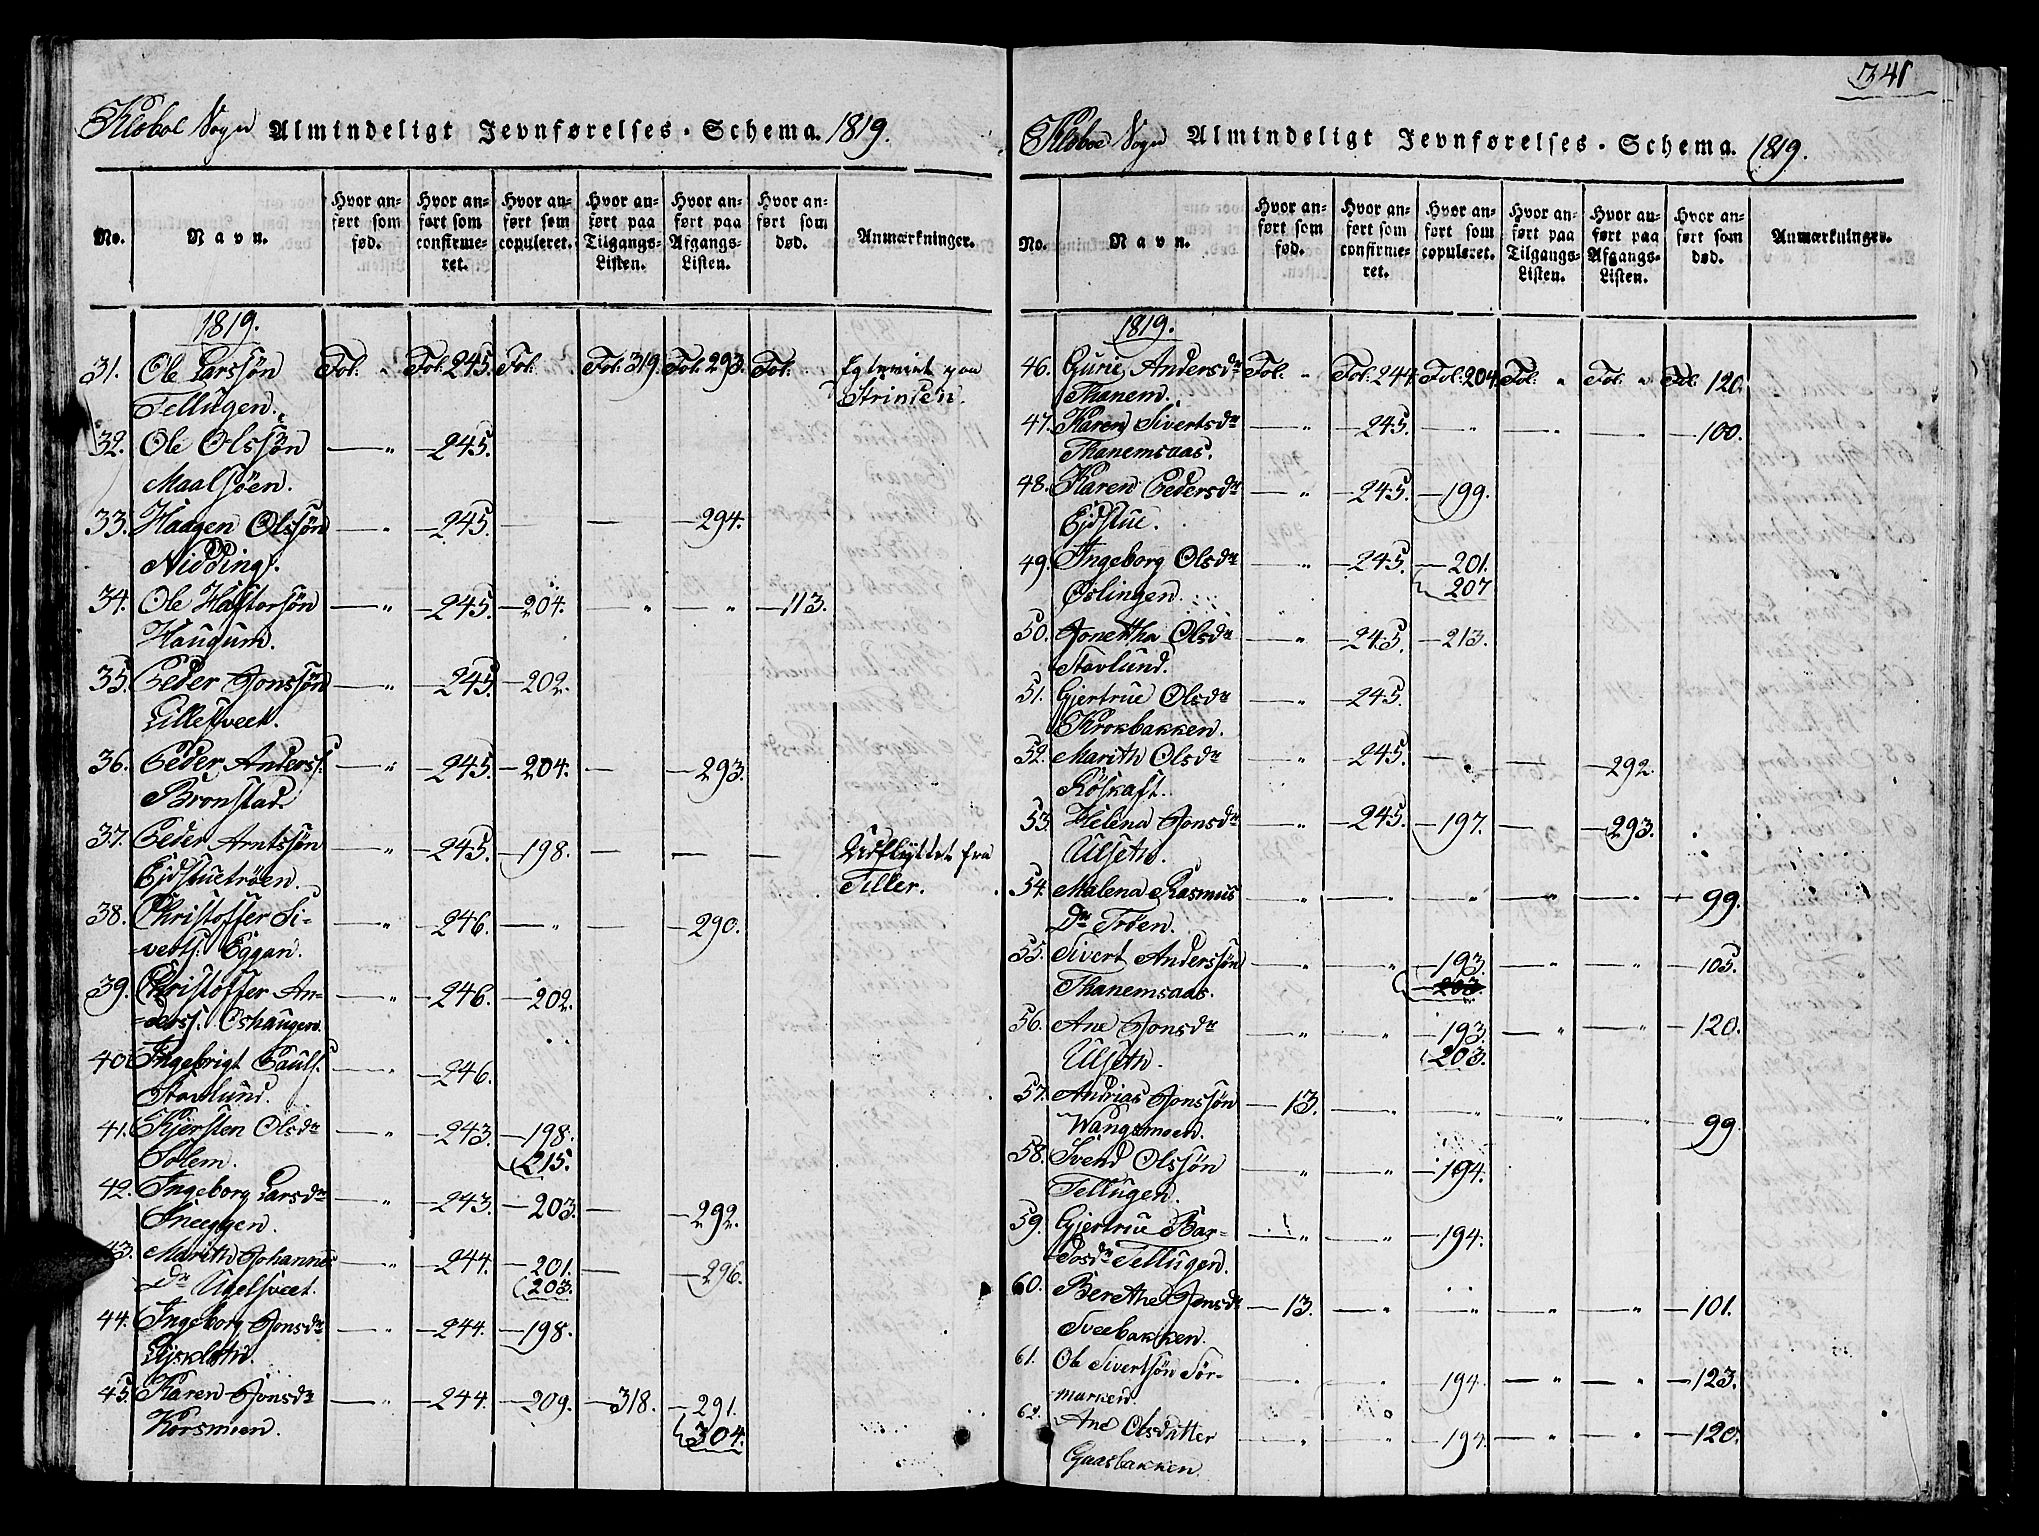 341
Klæboe Sogn Almindeligt Jevnførelses-Schema. 1819.
No. Navn. Hvor anført som fød. Hvor anført som confirmeret. Hvor anført som copuleret. Hvor anført paa Tilgangs-Listen. Hvor anført paa Afgangs-Listen. Hvor anført som død. Anmærkninger.
1819.
31. Ole Larssøn Fol. „ Fol. 245. Fol. Fol. 319. Fol. 293. Fol.
Tellugen. Strinden.
32. Ole Olssøn — „ — 245.
Maalsøen.
33. Haagen Olssøn — „ — 245. — — 294.
Nidding.
34. Ole Haftorsøn — „ — 245. — 204. — „ — „ — 113.
Haugum.
35. Peder Jonssøn — „ — 245. — 202.
Lillesveet.
36. Peder Anderss. — „ — 245. — 204. — — 293.
Bronstad.
37. Peder Arntssøn — „ — 245. — 198. — — — Udflyttet fra
Ejdstuetrøen. Tiller.
38. Christoffer Si- — „ — 246. — „ — 290.
verts. Eggan.
39. Christoffer An- — „ — 246. — 202.
derss. Oshaugen.
40. Ingebrigt Pauls. — „ — 246.
Stavlund.
41. Kjersten Olsdr — „ — 243. — 198.
Solem. 215.
42. Ingeborg Larsdr — „ — 243. — 203. — — 292.
Sneeggen.
43. Marith Johannes — „ — 244. — 201. — — 296.
Dr Ugelsveet. 203.
44. Ingeborg Jonsdr — „ — 244. — 198.
45. Karen Jonsdr — „ — 244. — 209. — 318. — 291.
Korsmoen. 304.
Klæboe Sogn Almindeligt Jevnførelses-Schema. 1819.
No. Navn. Hvor anført som fød. Hvor anført som confirmeret. Hvor anført som copuleret. Hvor anført paa Tilgangs-Listen. Hvor anført paa Afgangs-Listen. Hvor anført som død. Anmærkninger.
1819.
46. Gurie Andersdr Fol. „ Fol. 244. Fol. 204. Fol. „ Fol. „ Fol. 120.
Thanem.
47. Karen Sivertsdr — „ — 245. — „ — „ — „ — 100.
Thanemsaas.
48. Karen Pedersdr — „ — 245. — 199.
Ejdstue.
49. Ingeborg Olsdr — „ — 245. — 201.
Øslingen. 207
50. Jonettha Olsdr — „ — 245. — 213.
Stavlund.
51. Gjertrue Olsdr — „ — 245.
Krokbakken.
52. Marith Olsdr — „ — 245. — „ — — 292.
Røskaft.
53. Helena Jonsdr — „ — 245. — 197. — — 293.
Ulseth.
54. Malena Rasmus — „ — „ — „ — „ — „ — 99.
Dr Trøen.
55. Sivert Anderssøn — „ — „ — 193. — „ — „ — 105.
Thanemsaas. — 203.
56. Ane Jonsdr — „ — „ — 193. — „ — „ — 120.
Ulseth. 203.
57. Andrias Jonssøn — 13. — „ — „ — „ — „ — 99.
Wangsmoen.
58. Svend Olssøn — „ — „ — 194.
Tellugen.
59. Gjertrue Bar- — „ — „ — 194.
dosdr Tellugen.
60. Berethe Jonsdr — 13. — „ — „ — „ — „ — 101.
Sveebakken.
61. Ole Sivertsøn Sør- — „ — „ — 194. — „ — „ — 123.
marken.
62. Ane Olsdatter — „ — „ — 194. — „ — „ — 120.
Gaasbakken.